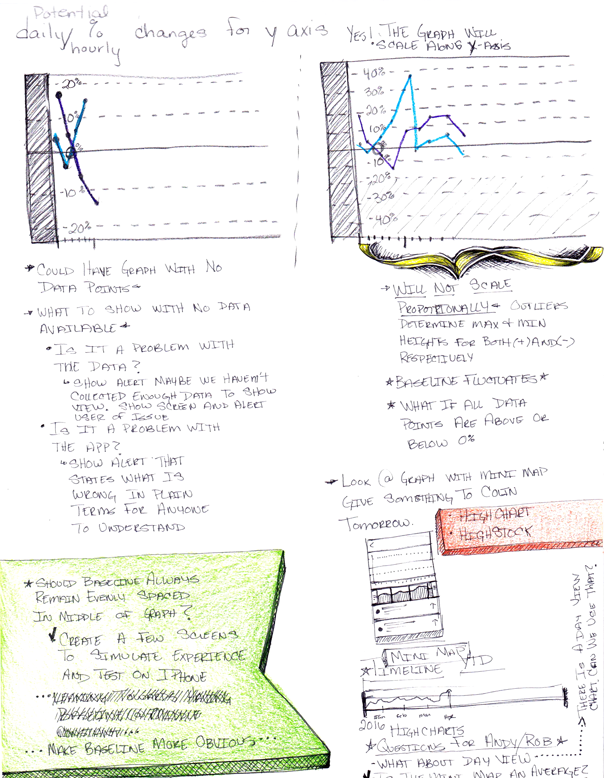 Potential
daily/ % changes for y axis
hourly
Yes! The Graph Will
• Scale Along Y-Axis
20%
10%
0%
-10%
-20%
40%
30%
20%
10%
0%
-10%
-20%
-30%
-40%
* Could Have Graph With No
Data Points *
* What To Show With No Data
Available *
• Is It A Problem With
The Data?
Show Alert Maybe We Haven't
Collected Enough Data To Show
View. Show Screen And Alert
User Of Issue
• Is It A Problem With
The App?
Show Alert That
States What Is
Wrong In Plain
Terms For Anyone
To Understand
* Should Baseline Always
Remain Evenly Spaced
In Middle Of Graph?
✓ Create A Few Screens
To Simulate Experience
And Test On iPhone
... Make Baseline More Obvious ....
Will Not Scale
Proportionally * Outliers
Determine Max & Min
Heights For Both (+) And (-)
Respectively
* Baseline Fluctuates *
* What If All Data
Points Are Above Or
Below 0%
Look @ Graph With Mini Map
Give Something To Colin
Tomorrow.
• High Chart
• Highstock
Mini Map
* Timeline YTD
2016
Highcharts
* Questions For Andy/Rob *
- What About Day View ......
> There Is A Day View
Chart, Can We Use That?
✓ Is The Mini Map An Average?